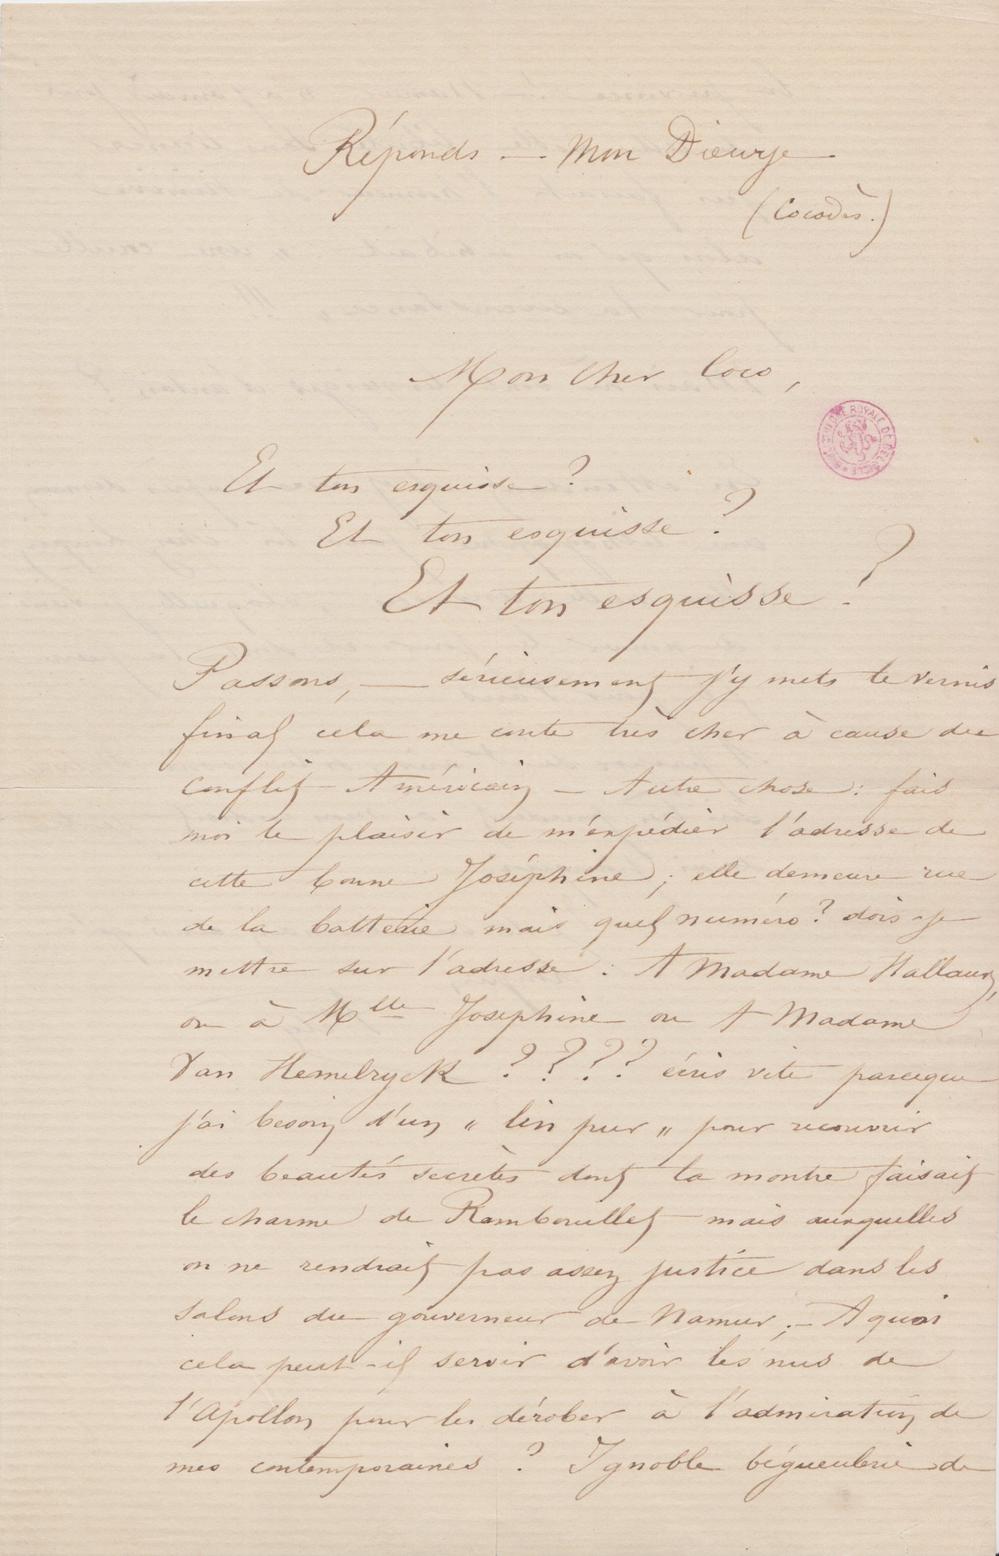 Réponds — Mon Dieurje
(Cocodès.)
Mon cher Coco,
BIBLIOTHÈQUE ROYALE DE BELGIQUE
Et ton esquisse ?
Et ton esquisse ?
Et ton esquisse ?
Passons, — sérieusement j'y mets le vernis
final cela me coute très cher à cause du
conflit Américain — Autre chose : fais
moi le plaisir de m'expédier l'adresse de
cette bonne Joséphine ; elle demeure rue
de la batterie mais quel numéro ? dois-je
mettre sur l'adresse : A Madame Hallaux,
ou à Mlle Joséphine ou A Madame
Van Hemelryck ???? écris vite parceque
j'ai besoin d'un „ lin pur „ pour recouvrir
des beautés secrètes dont la montre faisait
le charme de Rambouillet mais auxquelles
on ne rendrait pas assez justice dans les
salons du gouverneur de Namur ; — A quoi
cela peut-il servir d'avoir les nus de
l'Apollon pour les dérober à l'admiration de
mes contemporaines ? Ignoble bégueulerie de